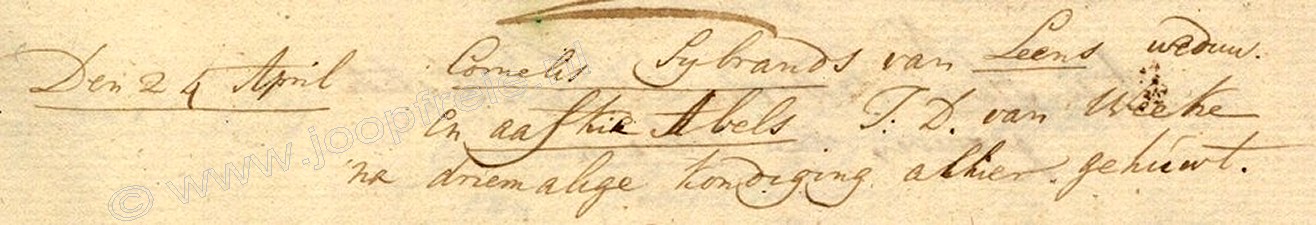 Den 24 April Cornelis Sybrands van Leens weduw.
en aafkie Abels J. D. van Weehe
na driemalige kondiging alhier gehuwt.
© www.joopfrels.nl